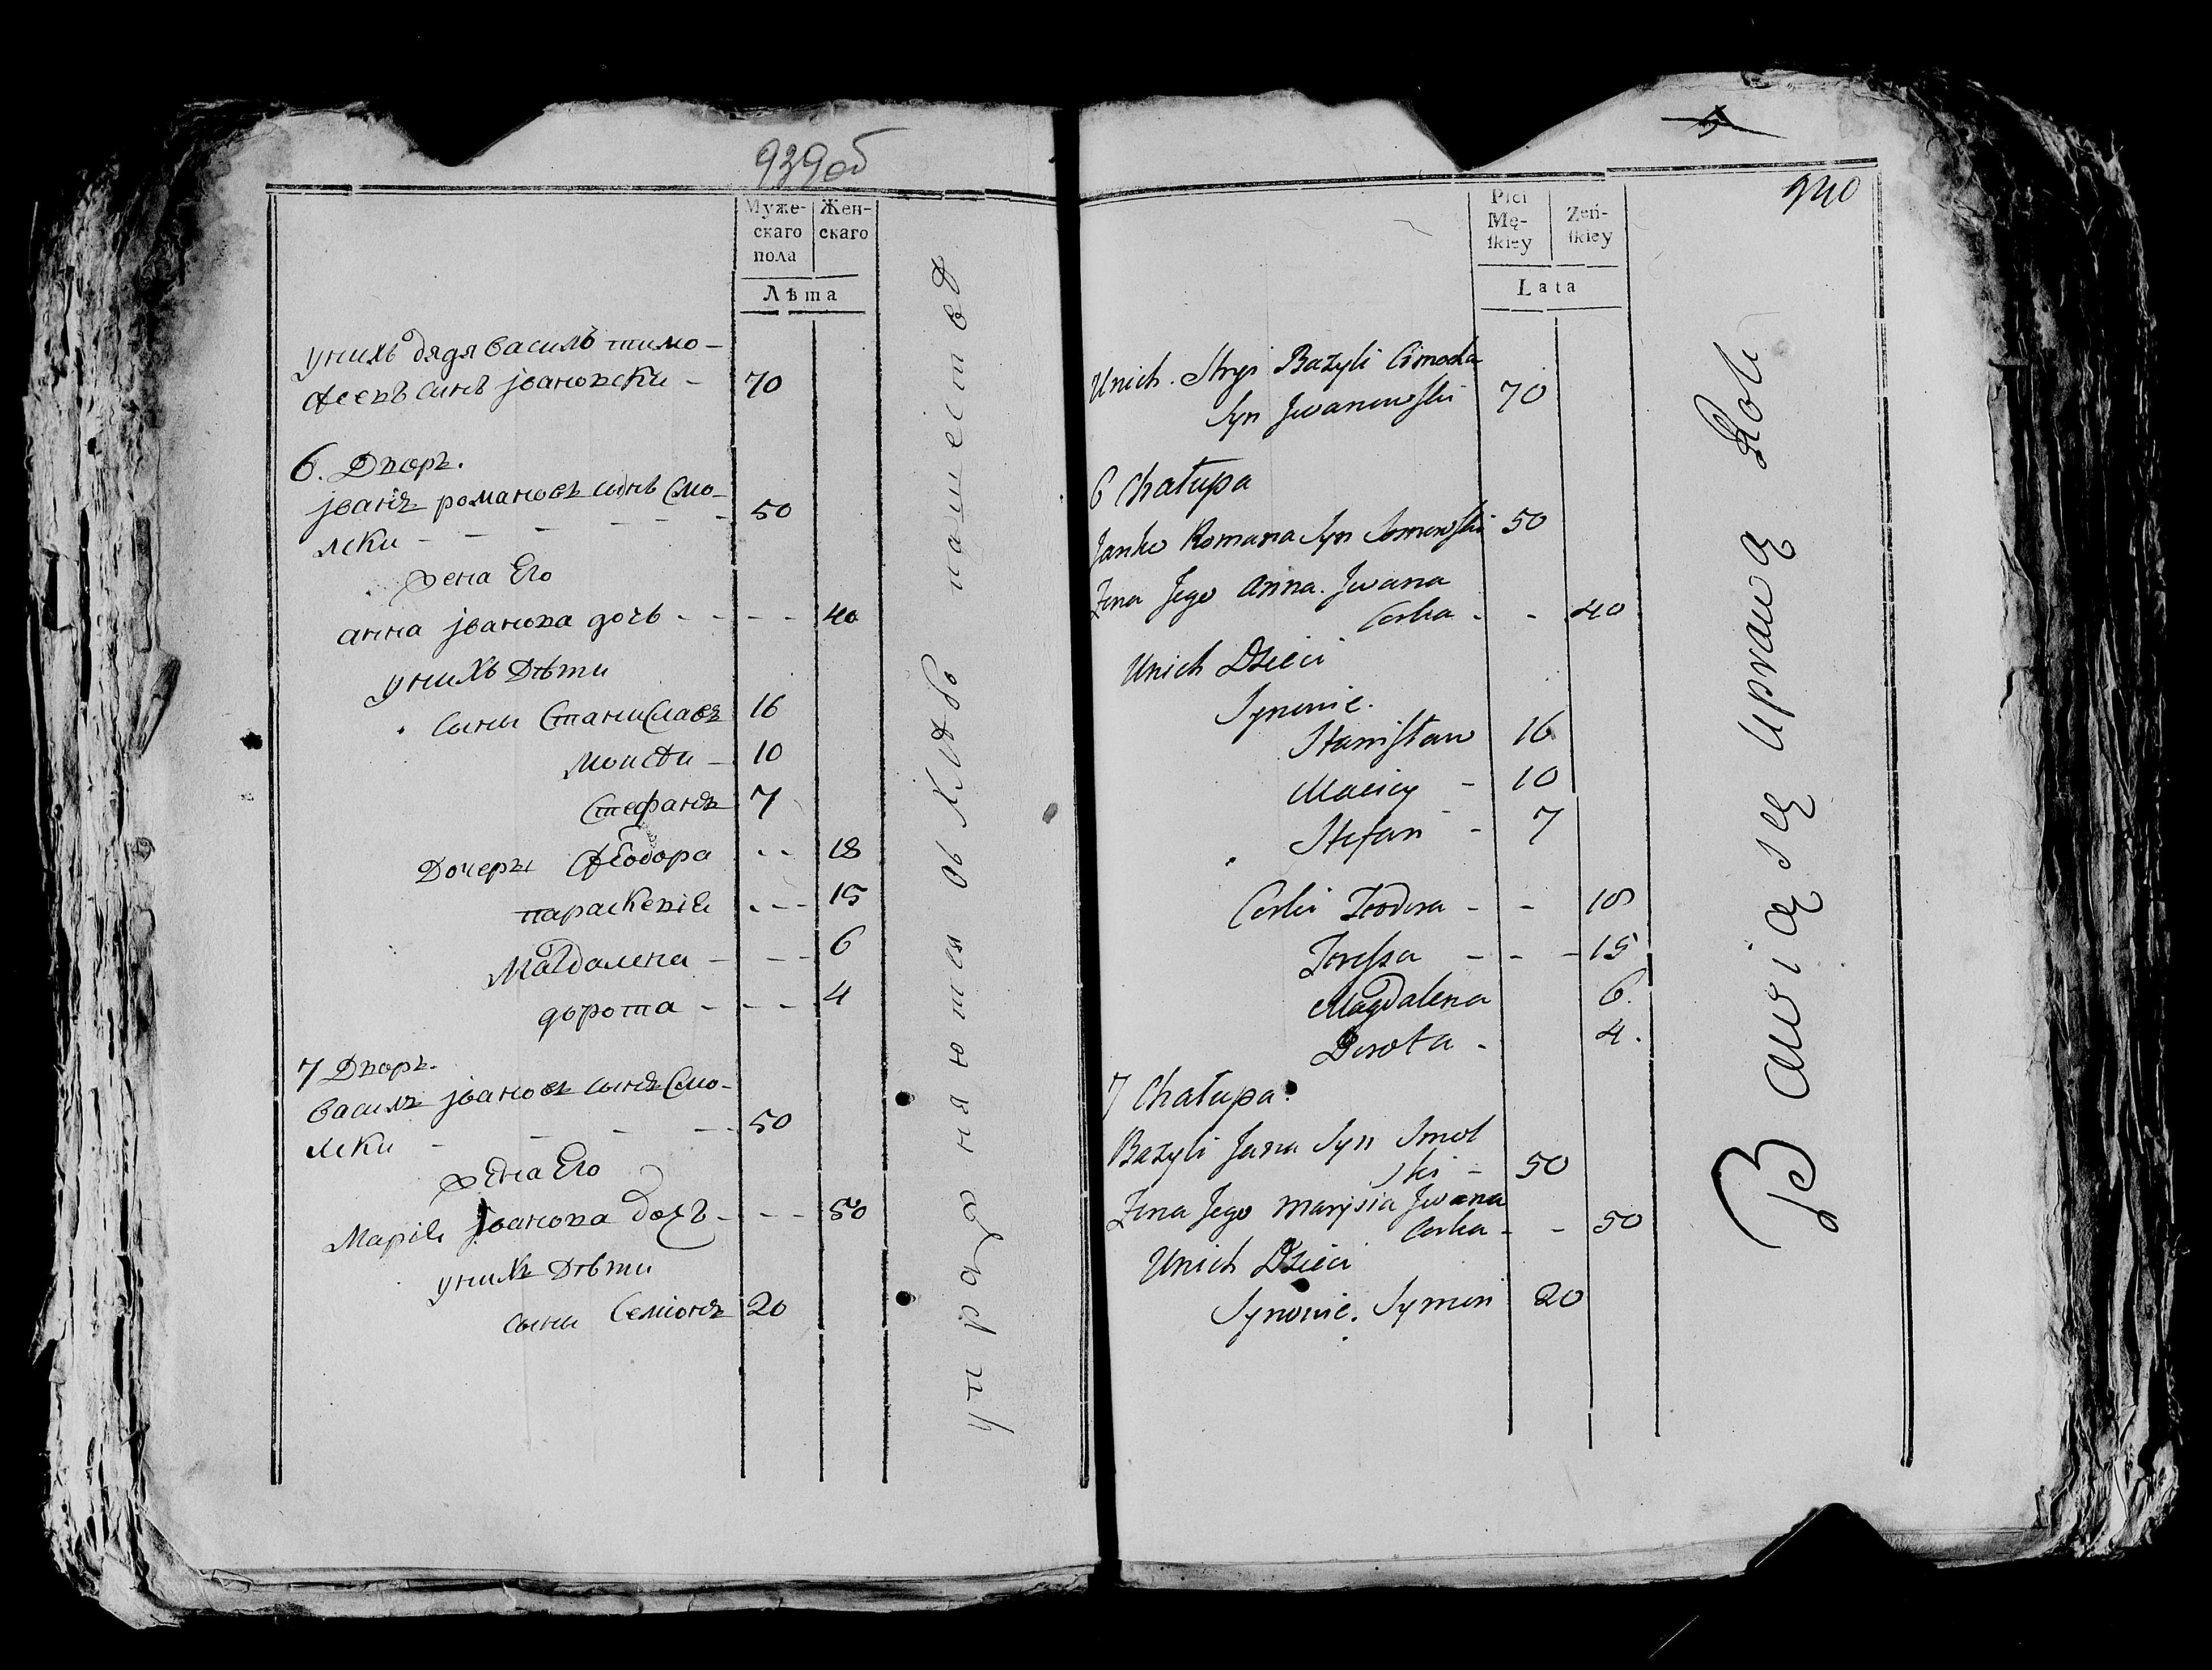 939об
Муже-
скаго
пола
Жен-
скаго
Лѣта
унихъ дядя василъ тимо-
ѳеевъ синъ јвановски - 70
6. Дворъ.
јванъ романовъ синъ Смо-
лски - - - - - 50
жена Его
анна јванова дочь - - - - 40
унихъ Дѣти
сини Станиславъ 16
Моисѣи - 10
Стефанъ 7
Дочеры Ѳеодора - - 18
параскевія - - - 15
Магдалена - - - 6
дорота - - - 4
7 Дворъ.
василъ јвановъ синъ Смо-
лски - - - - - 50
жена Его
Марія јванова дочъ - - - 50
унихъ Дѣти
сыни Семіонъ 20
упражняются въ хлѣбопашествѣ
940
Płci
Mę-
ſkiey
Zeń-
ſkiey
Lata
Unich. Stryi Bazyli Cimocha
Syn Jwanowski 70
6 Chałupa
Janko Romana Syn 50
Zena Jego Anna. Jwana
Corka - - 40
Unich Dzieci
Synowie.
Stanisław 16
Maciey - 10
Stefan - 7
Corki Teodora - - 18
Teressa - - - 15
Magdalena 6.
Dorota - 4.
7 Chałupa.
Bazyli Jana Syn Smol
ski - 50
Zena Jego Marysia Jwana
Corka - - 50
Unich Dzieci
Synowie. Symon 20
Bawią się uprawą Roli